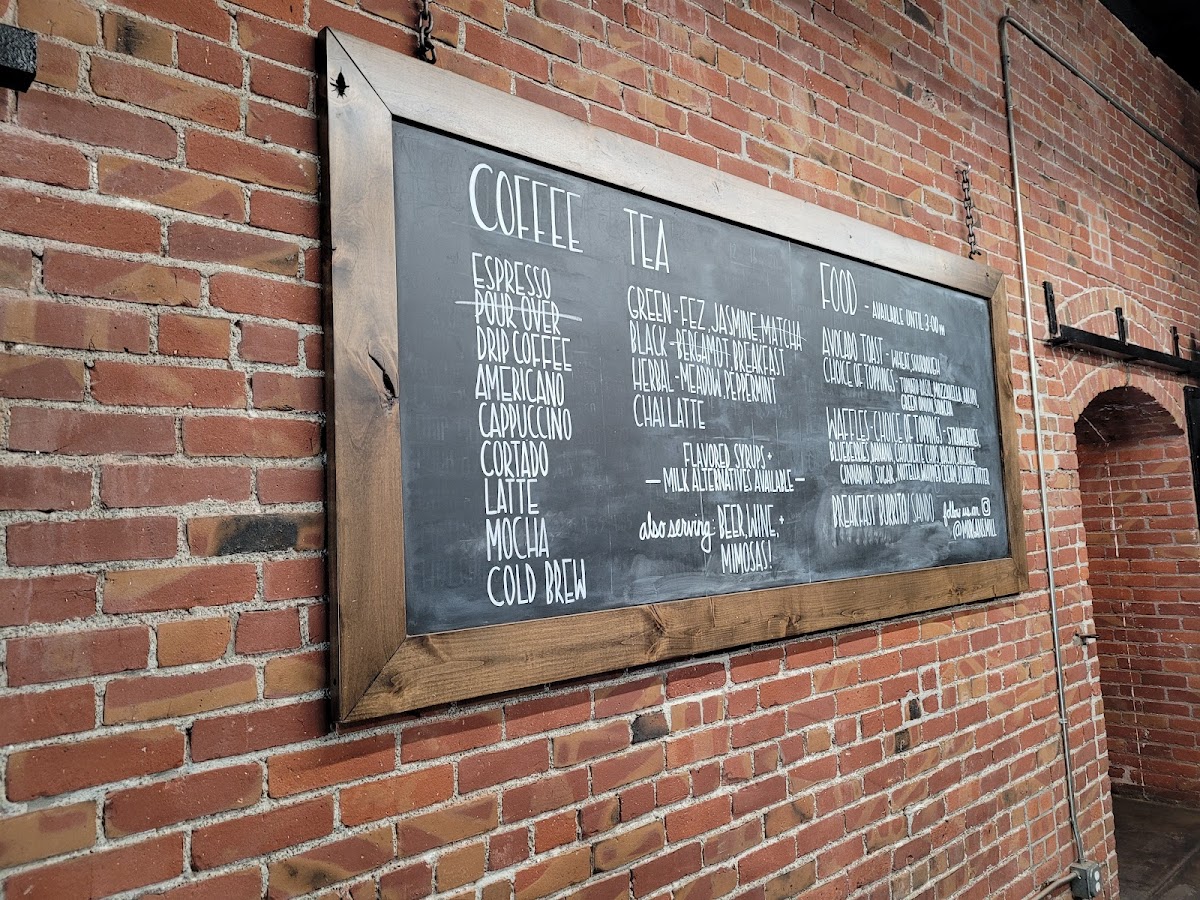 COFFEE
ESPRESSO
POUR OVER
DRIP COFFEE
AMERICANO
CAPPUCCINO
CORTADO
LATTE
MOCHA
COLD BREW
TEA
GREEN - FEZ, JASMINE, MATCHA
BLACK - BERGAMOT, BREAKFAST
HERBAL - MEADOW, PEPPERMINT
CHAI LATTE
FLAVORED SYRUPS +
— MILK ALTERNATIVES AVAILABLE —
also serving: BEER, WINE, +
MIMOSAS!
FOOD - AVAILABLE UNTIL 3:00PM
AVOCADO TOAST - WHEAT, SOURDOUGH
CHOICE OF TOPPINGS - TOMATO, BASIL, MOZZARELLA,
GREEN ONION, SRIRACHA
WAFFLES - CHOICE OF TOPPINGS - STRAWBERRIES,
BLUEBERRIES, BANANA, CHOCOLATE CHIPS,
CINNAMON SUGAR, NUTELLA, WHIPPED CREAM, PEANUT BUTTER
BREAKFAST BURRITO/ SANDO
follow us on
@MORGANSMILL